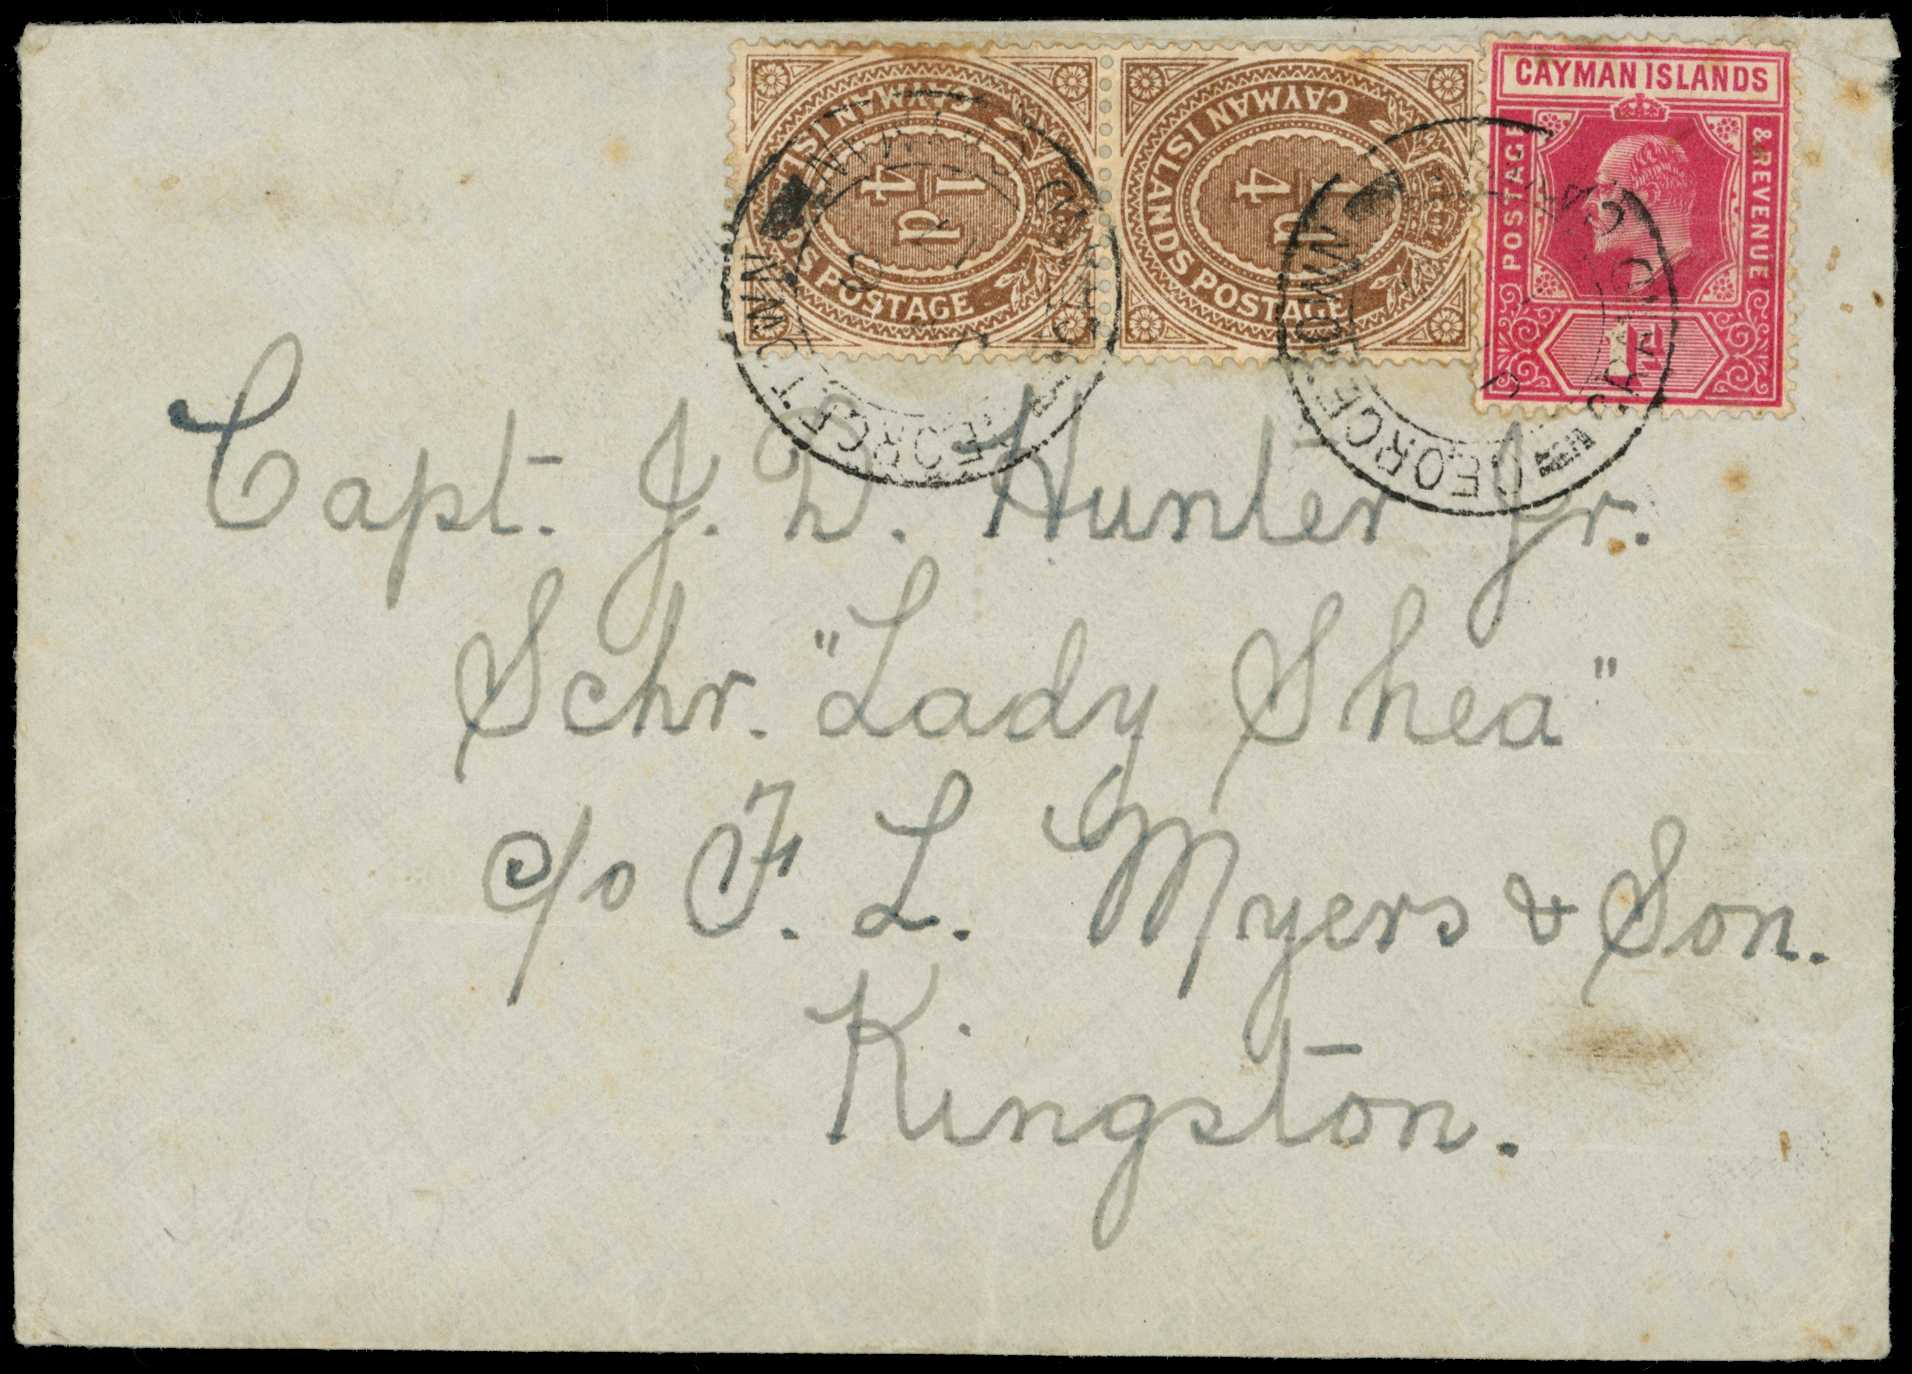 CAYMAN ISLANDS POSTAGE
1/4 d
CAYMAN ISLANDS POSTAGE
1/4 d
CAYMAN ISLANDS
POSTAGE
& REVENUE
1D
GEORGETOWN
GRAND CAYMAN
GEORGETOWN
GRAND CAYMAN
Capt. J. D. Hunter Jr.
Schr. "Lady Shea"
c/o F. L. Myers & Son.
Kingston.